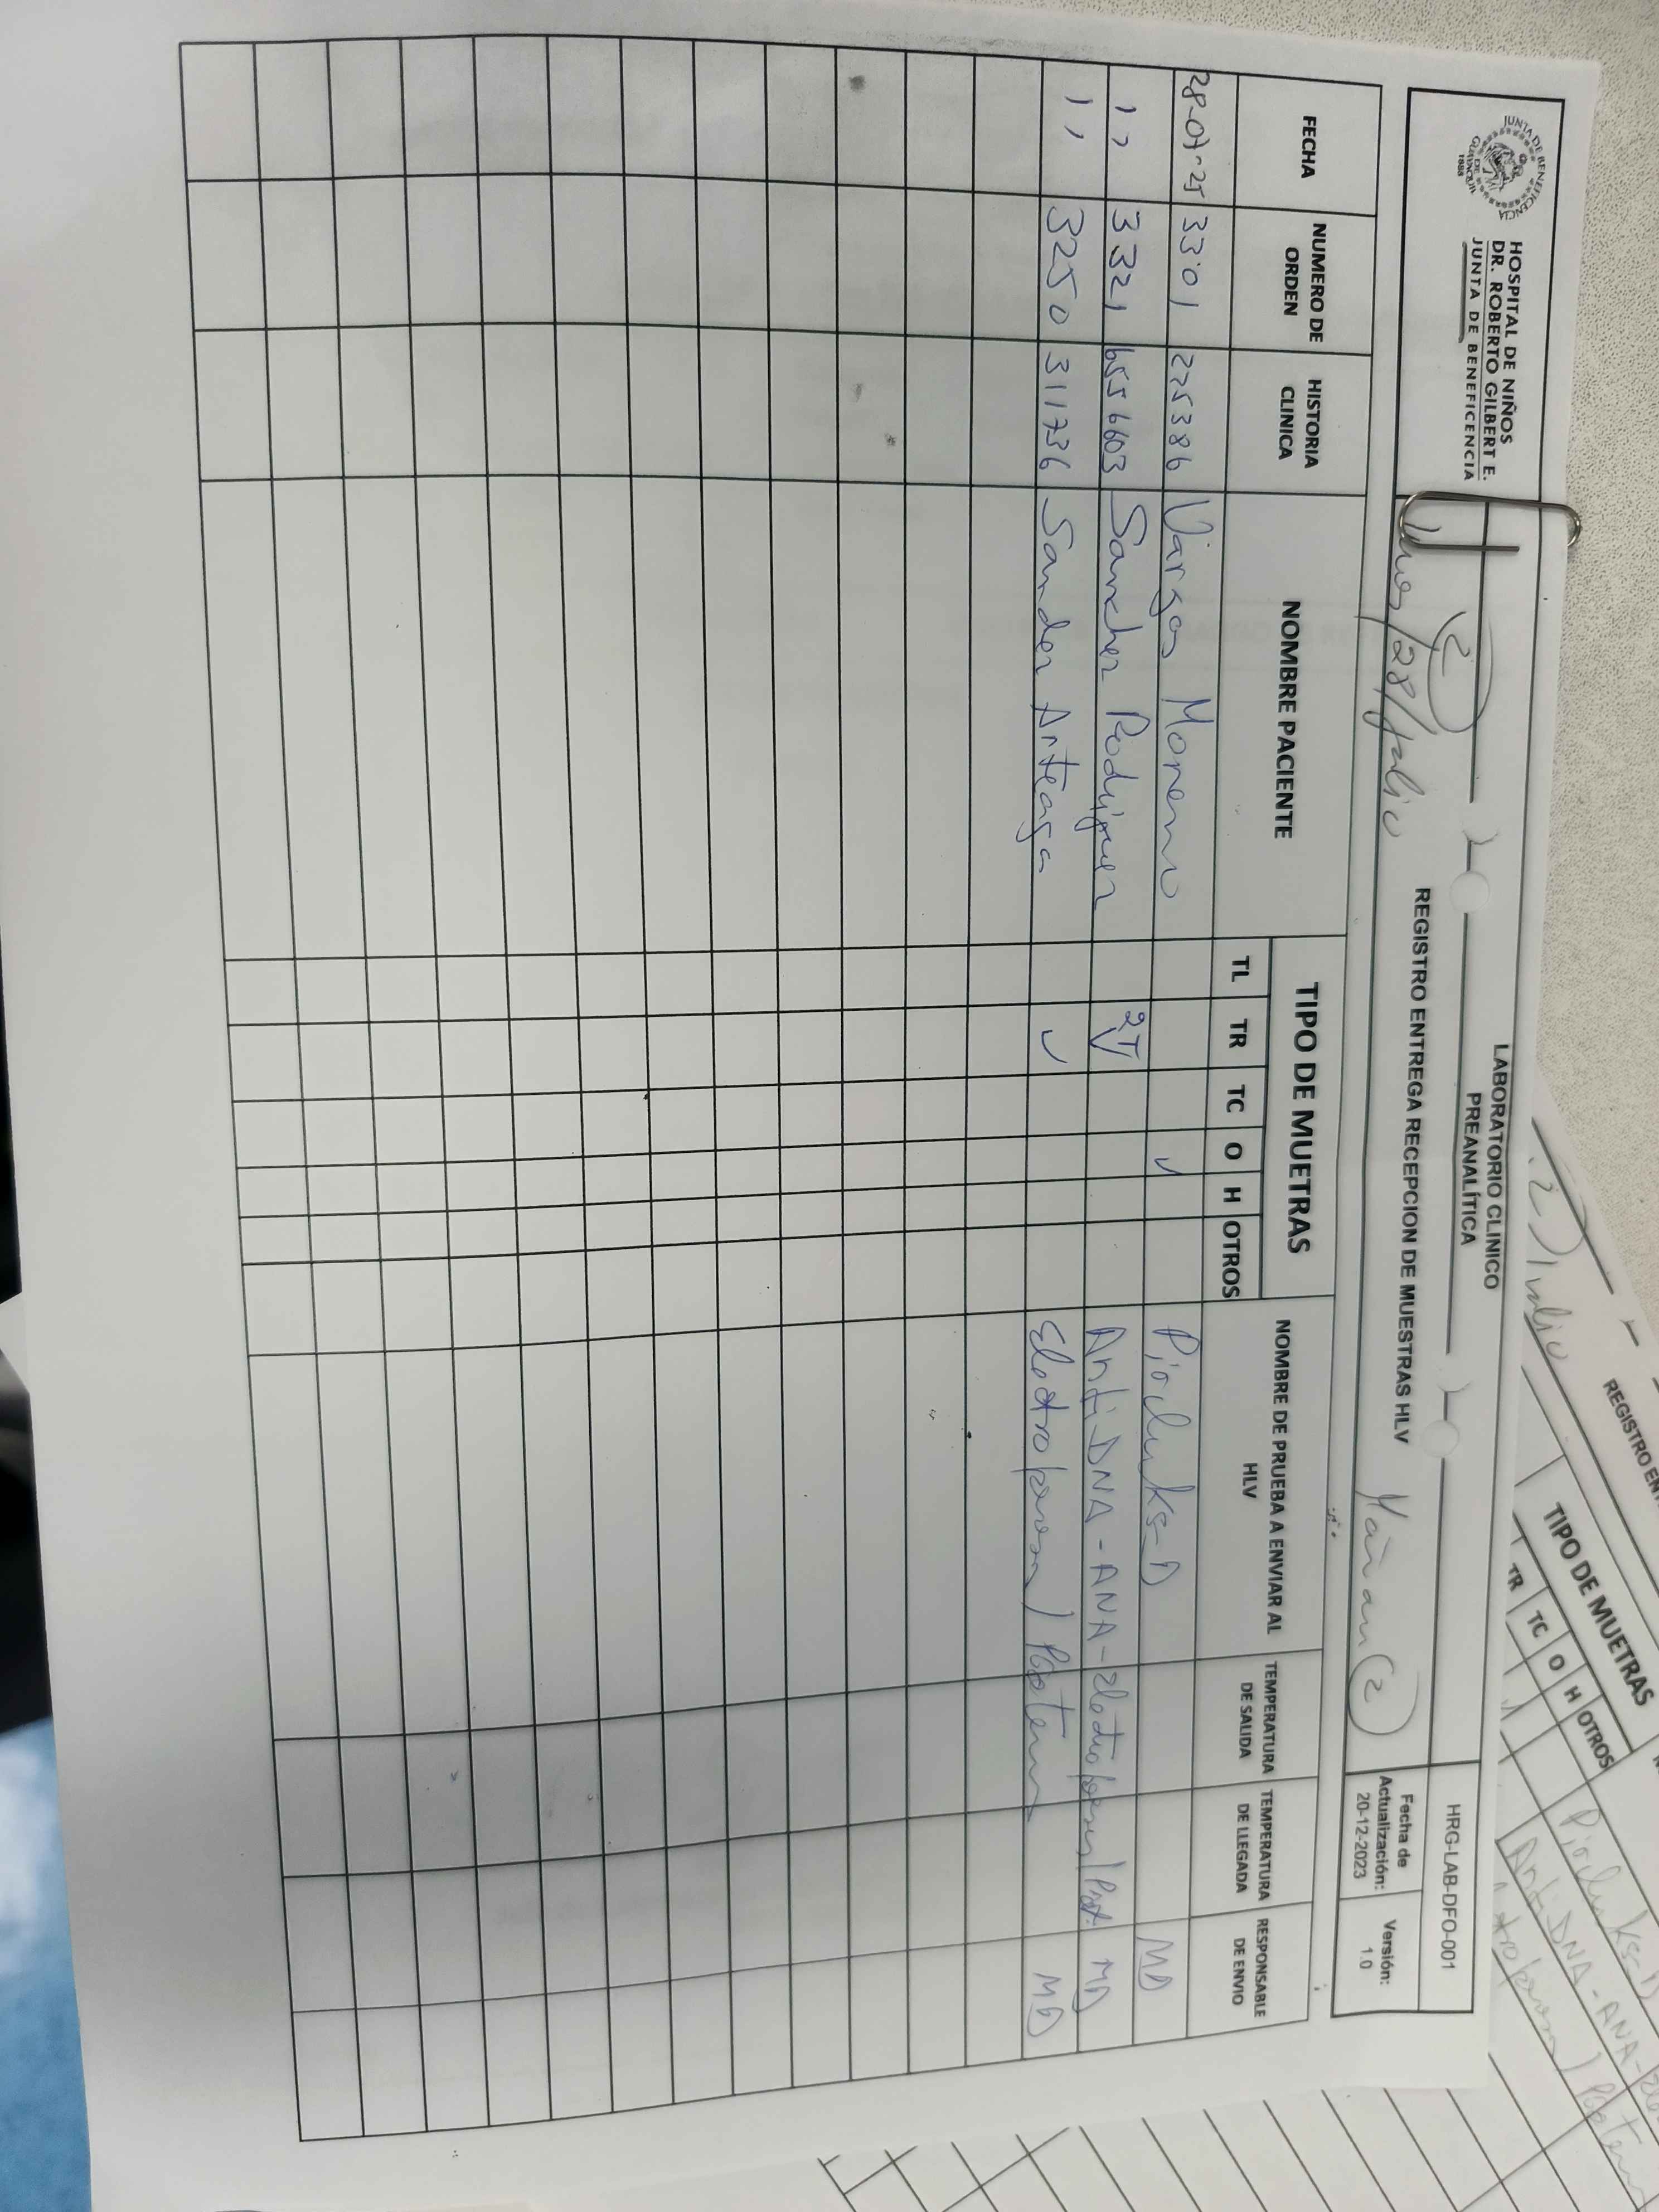 JUNTA DE BENEFICENCIA
1888
HOSPITAL DE NIÑOS
DR. ROBERTO GILBERT E.
JUNTA DE BENEFICENCIA
LABORATORIO CLINICO
PREANALÍTICA
HRG-LAB-DFO-001
2
/28/Julio
REGISTRO ENTREGA RECEPCION DE MUESTRAS HLV
Mañana 2
Fecha de
Actualización:
20-12-2023
Versión:
1.0
FECHA
NUMERO DE
ORDEN
HISTORIA
CLINICA
NOMBRE PACIENTE
TIPO DE MUETRAS
TL TR TC O H OTROS
NOMBRE DE PRUEBA A ENVIAR AL
HLV
TEMPERATURA
DE SALIDA
TEMPERATURA
DE LLEGADA
RESPONSABLE
DE ENVIO
28-07-25 3301 225386 Vargas Moreno ✓ MD
,, 3321 6556603 Sanchez Rodriguez 2T✓ Anti DNA - ANA - MD
,, 3250 311736 Arteaga ✓ MD
Julio
REGISTRO ENT
TIPO DE MUETRAS
TR TC O H OTROS
Anti DNA - ANA -